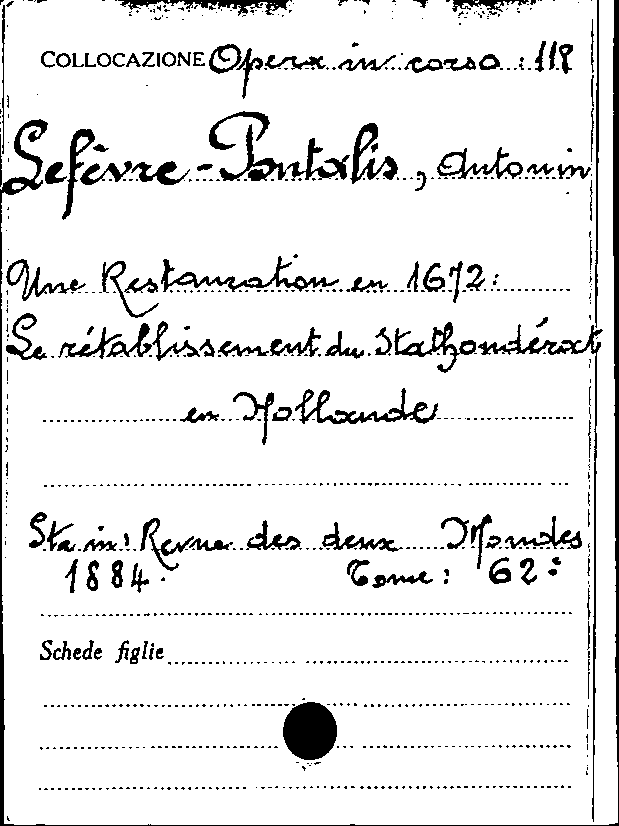 COLLOCAZIONE Opera in corso : 118
Lefèvre-Pontalis, Antonin
Une Restauration en 1672:
Le rétablissement du Stathoudérat
en Hollande
Sta in: Revue des deux Mondes
1884. Tome: 62º
Schede figlie